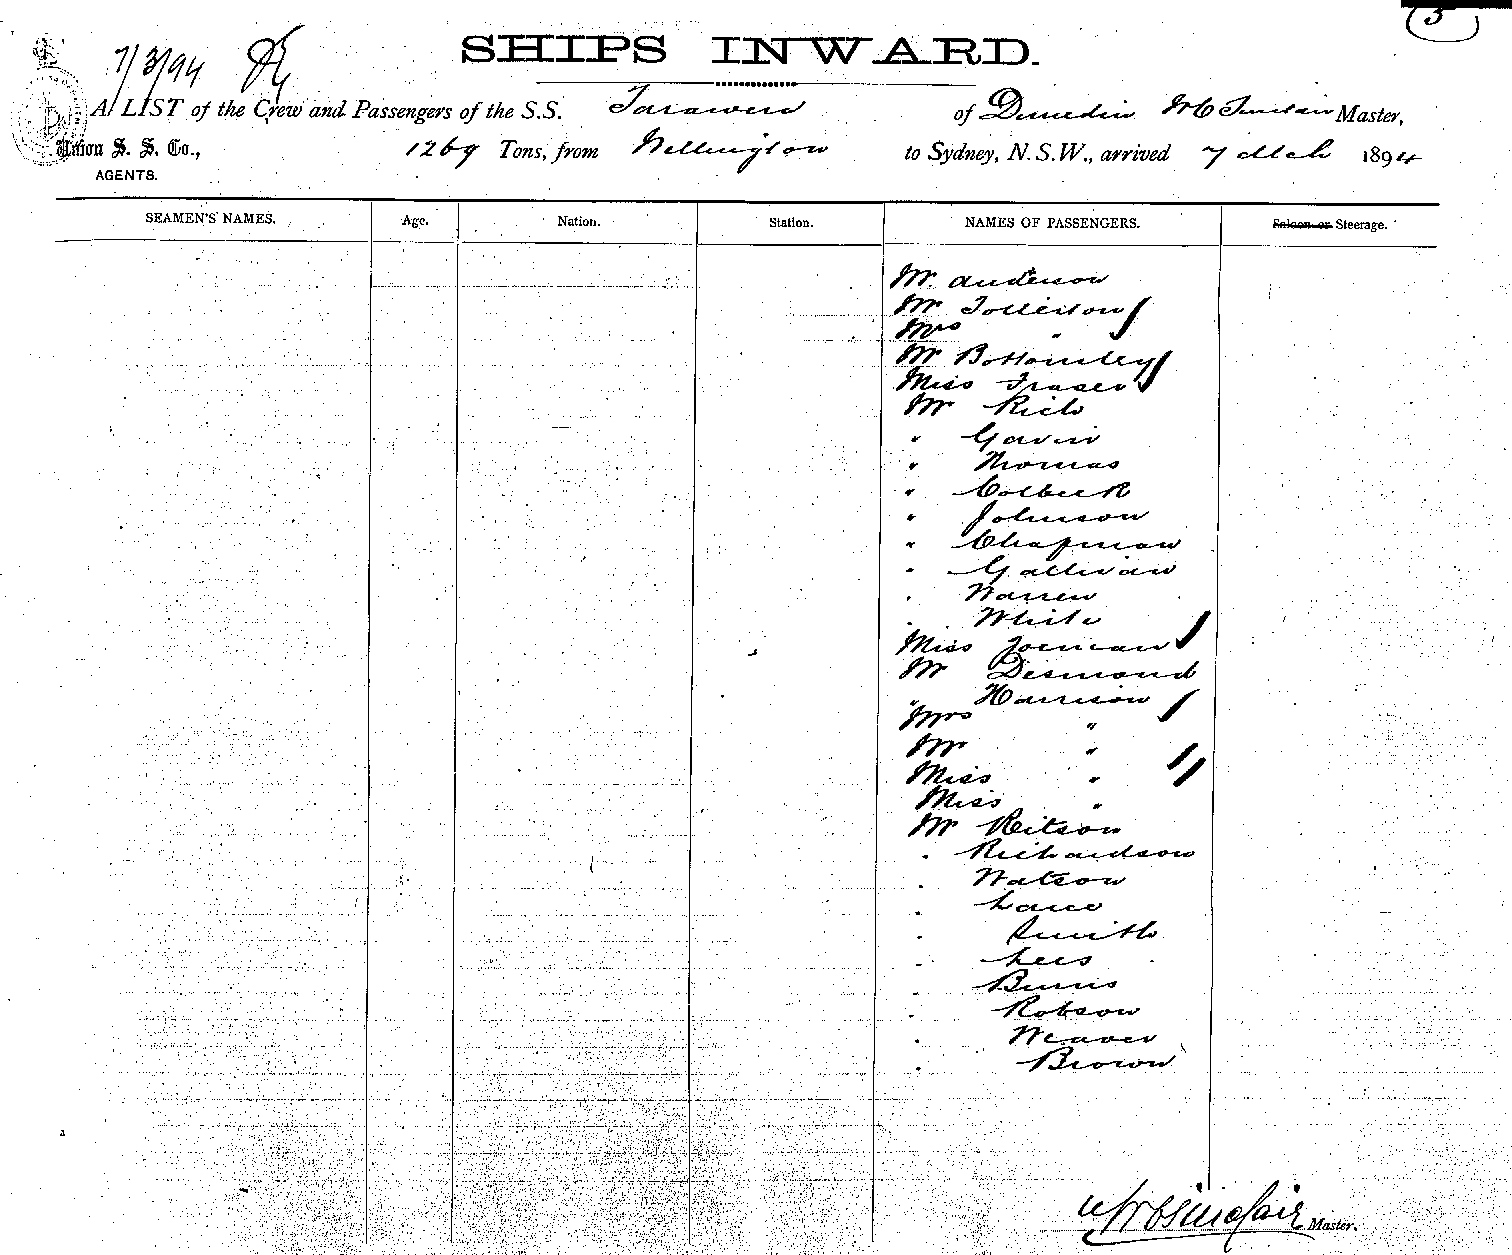 5
7/3/94
SHIPS INWARD.
A LIST of the Crew and Passengers of the S.S. Tarawera of Dunedin W C Sinclair Master,
Union S. S. Co., 1269 Tons, from Wellington to Sydney, N.S.W., arrived 7 Mch 1894
AGENTS.
SEAMEN'S NAMES. Age. Nation. Station. NAMES OF PASSENGERS. Saloon or Steerage.
Mr Anderson
Mr Tollerton
Mrs "
Mr Bottomley
Miss Fraser
Mr Rich
" Gavin
" Thomas
" Colbeck
" Johnson
" Chapman
" Gallivan
" Warren
" White
Miss
Mr Desmond
" Harrison
Mrs "
Mr "
Miss "
Miss "
Mr Ritson
" Richardson
" Watson
" Lane
" Smith
" Lees
" Burns
" Robson
" Weaver
" Brown
W C Sinclair Master.